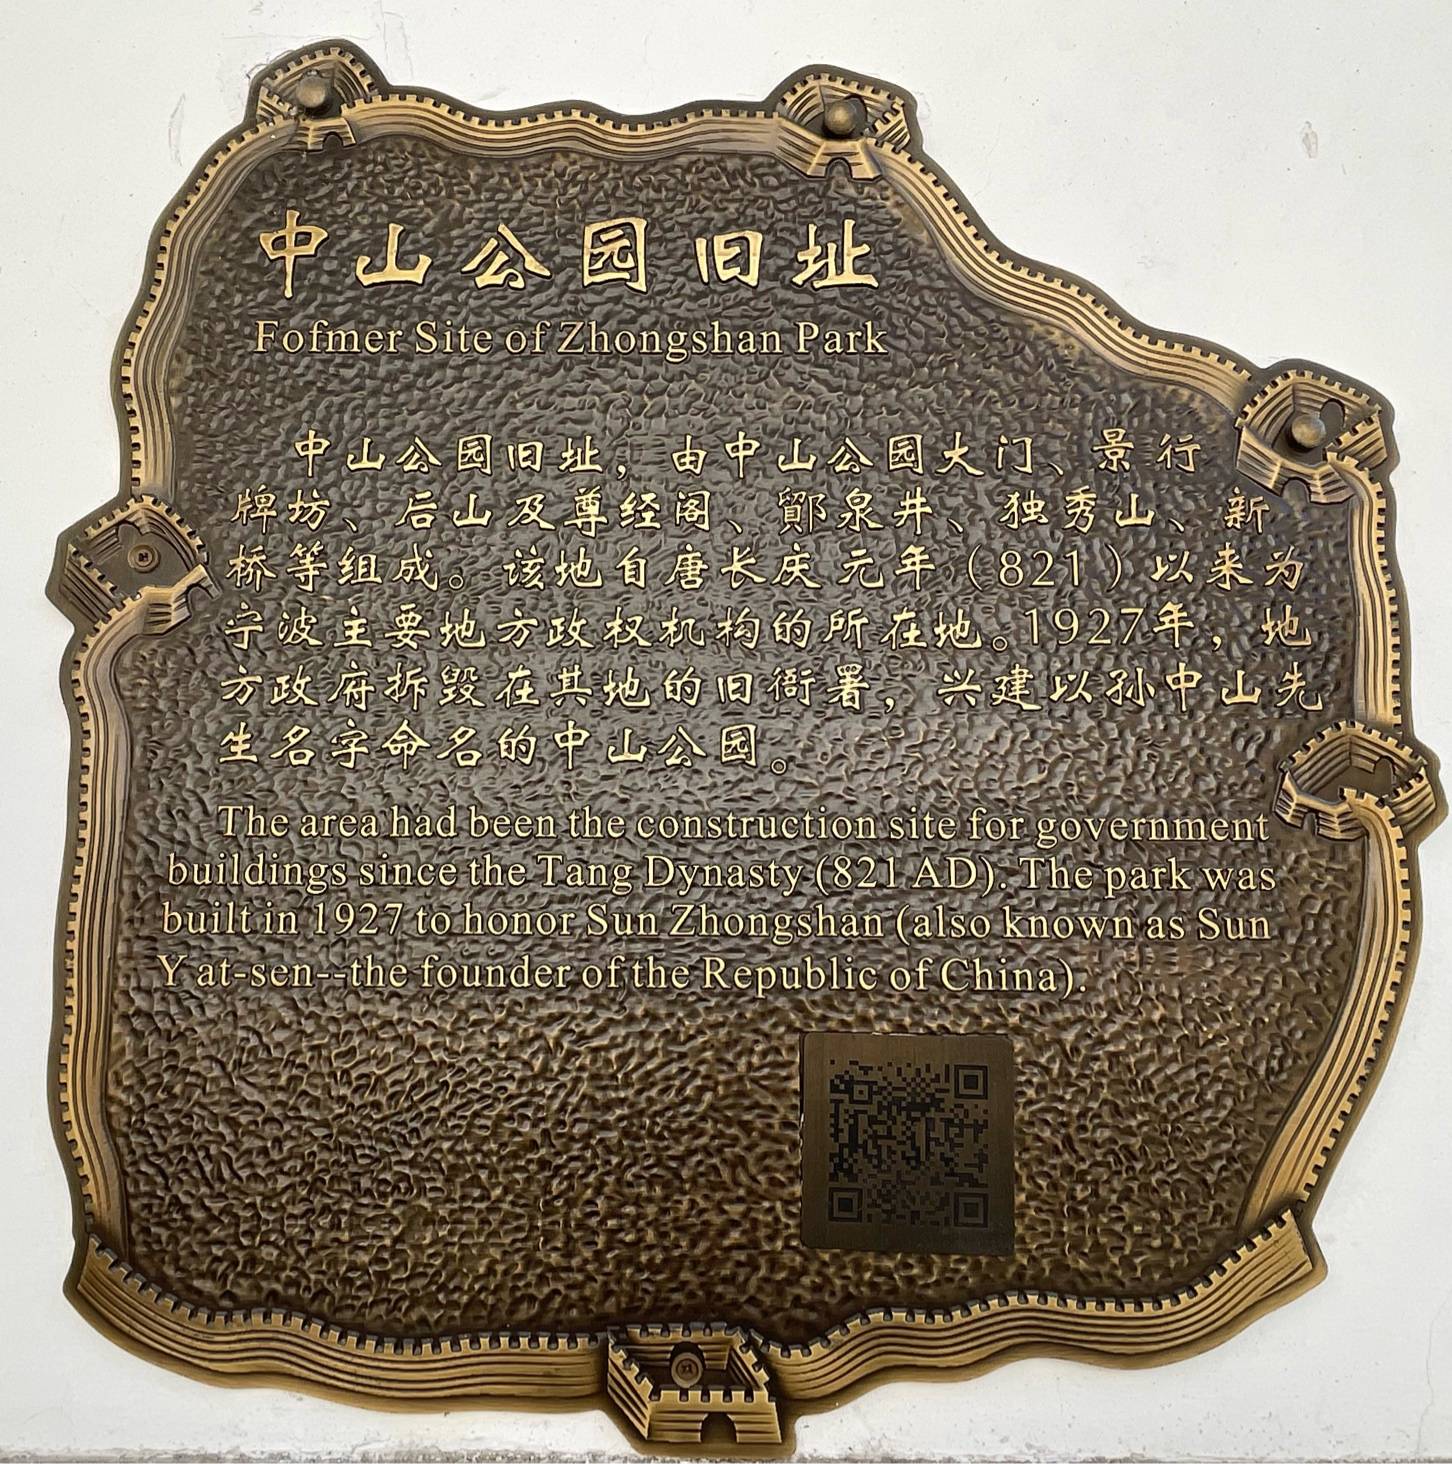 中山公园旧址
Fofmer Site of Zhongshan Park
中山公园旧址，由中山公园大门、景行
牌坊、后山及尊经阁、鄮泉井、独秀山、新
桥等组成。该地自唐长庆元年（821）以来为
宁波主要地方政权机构的所在地。1927年，地
方政府拆毁在其地的旧衙署，兴建以孙中山先
生名字命名的中山公园。
The area had been the construction site for government
buildings since the Tang Dynasty (821 AD). The park was
built in 1927 to honor Sun Zhongshan (also known as Sun
Yat-sen--the founder of the Republic of China).